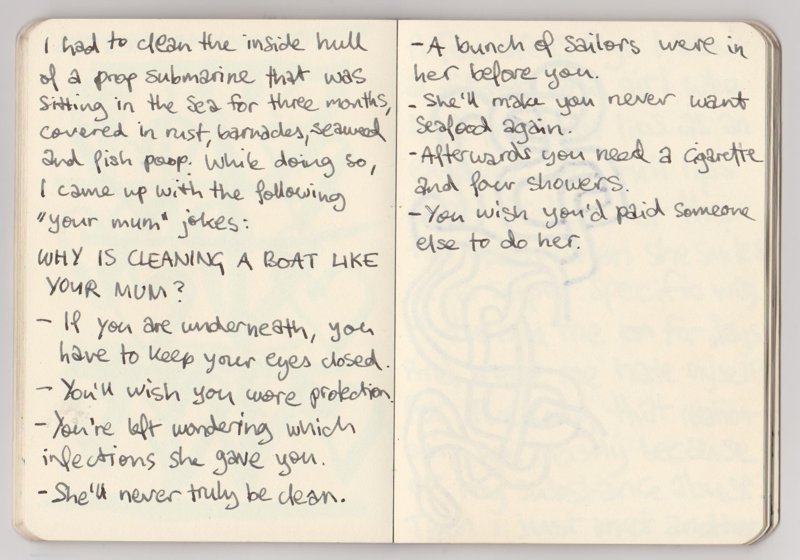 I had to clean the inside hull
of a prop submarine that was
sitting in the sea for three months,
covered in rust, barnacles, seaweed
and fish poop. While doing so,
I came up with the following
"your mum" jokes:
WHY IS CLEANING A BOAT LIKE
YOUR MUM?
- If you are underneath, you
have to keep your eyes closed.
- You'll wish you wore protection.
- You're left wondering which
infections she gave you.
- She'll never truly be clean.
- A bunch of sailors were in
her before you.
- She'll make you never want
seafood again.
- Afterwards you need a cigarette
and four showers.
- You wish you'd paid someone
else to do her.